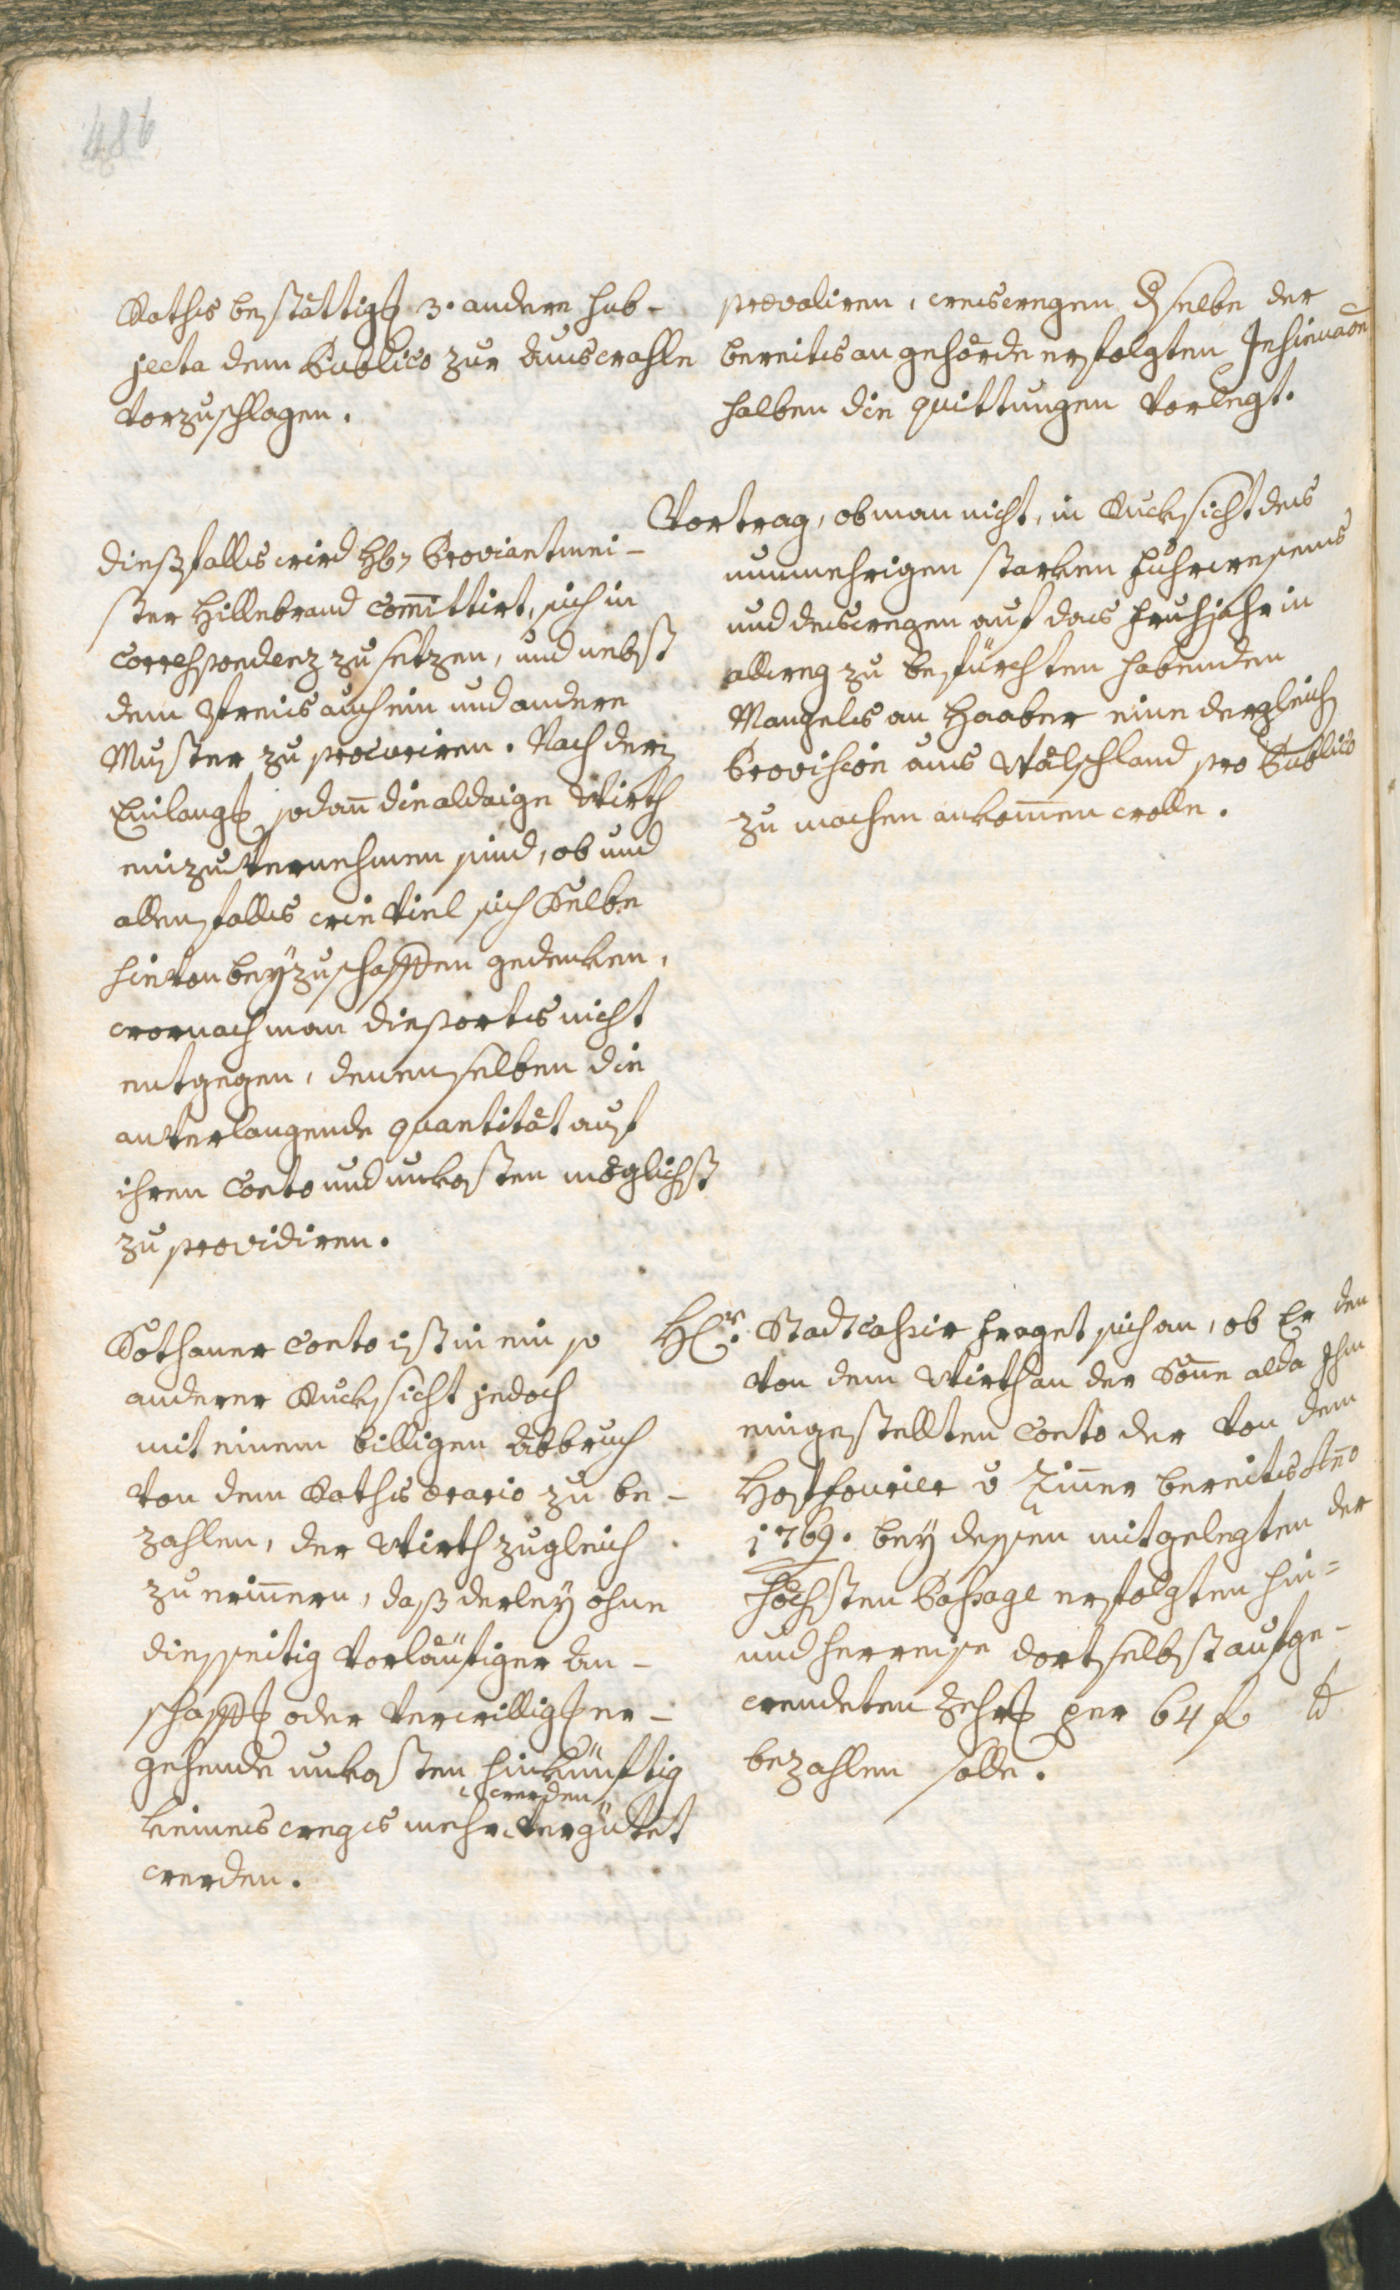 486
Raths bestättigg 3. andere Sub-
jecta dem Publico zur Auswahle
vorzuschlagen.
diesfalls wird H: Proviantmei-
ster Hillebrand Committirt, sich in
Correspondenz zu setzen, und nebst
dem Preis auch ein und andere
Muster zu procuriren. Nach der
Einlangg sodan̄ die aldaige Wirth
einzuvernehmen sind, ob und
allenfalls wie viel sich Selbe
hievon beyzuschaffen gedenken,
wornach man diesorts nicht
entgegen, denenselben die
anverlangende quantität auf
ihren Conto und unkosten möglichst
zu providiren.
Sothaner Conto ist in ein so
anderer Rucksicht jedoch
mit einem billigen Abbruch
von dem Raths ærario zu be-
zahlen, der Wirth zugleich
zu erin̄ern, daß derley ohne
diesseitig vorläufiger An-
schaffg oder verwilligg er-
gehende unkosten hinkünftig
keines wegs mehr werden vergütet
werden.
prævaliren, weswegen dselbe der
bereits an gehörde erfolgten
halben die quittungen vorlegt.
Vortrag, ob man nicht, in Rucksicht des
nunmehrigen starken fuhrwesens
und deswegen auf das fruhjahr in
allweg zu befürchten habenden
Mangels an Haaber eine dergleich
Provision aus Wälschland pro Publico
zu machen ankom̄en wolle.
H: Stadtcassir fraget sich an, ob Er den
von dem Wirth an der Son̄e alda Ihm
eingestellten Conto der von dem
Hoffourier v Zin̄er bereits An̄o
1769. bey dessen mitgelegten der
höchsten Passage erfolgten hin=
und herreise dortselbst aufge-
wendeten Zehrg per 64 f
bezahlen solle.